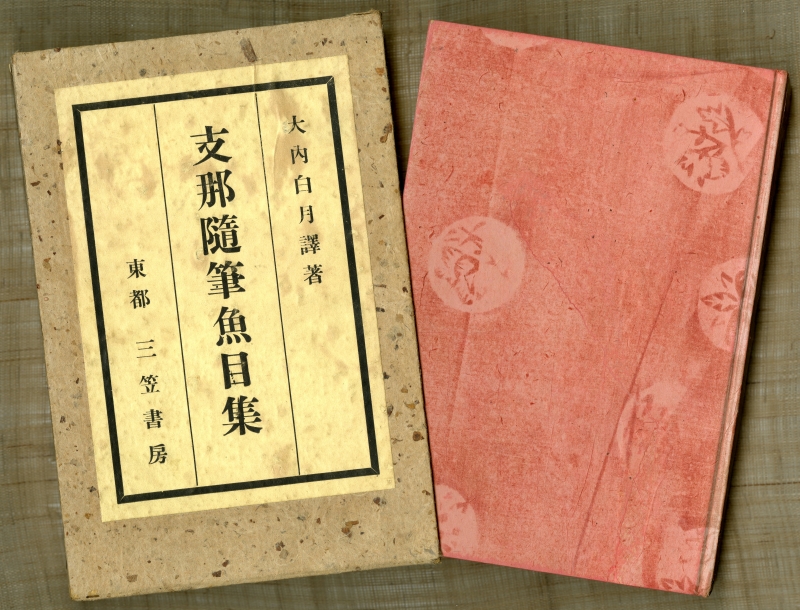 大內白月譯著
支那隨筆魚目集
東都 三笠書房